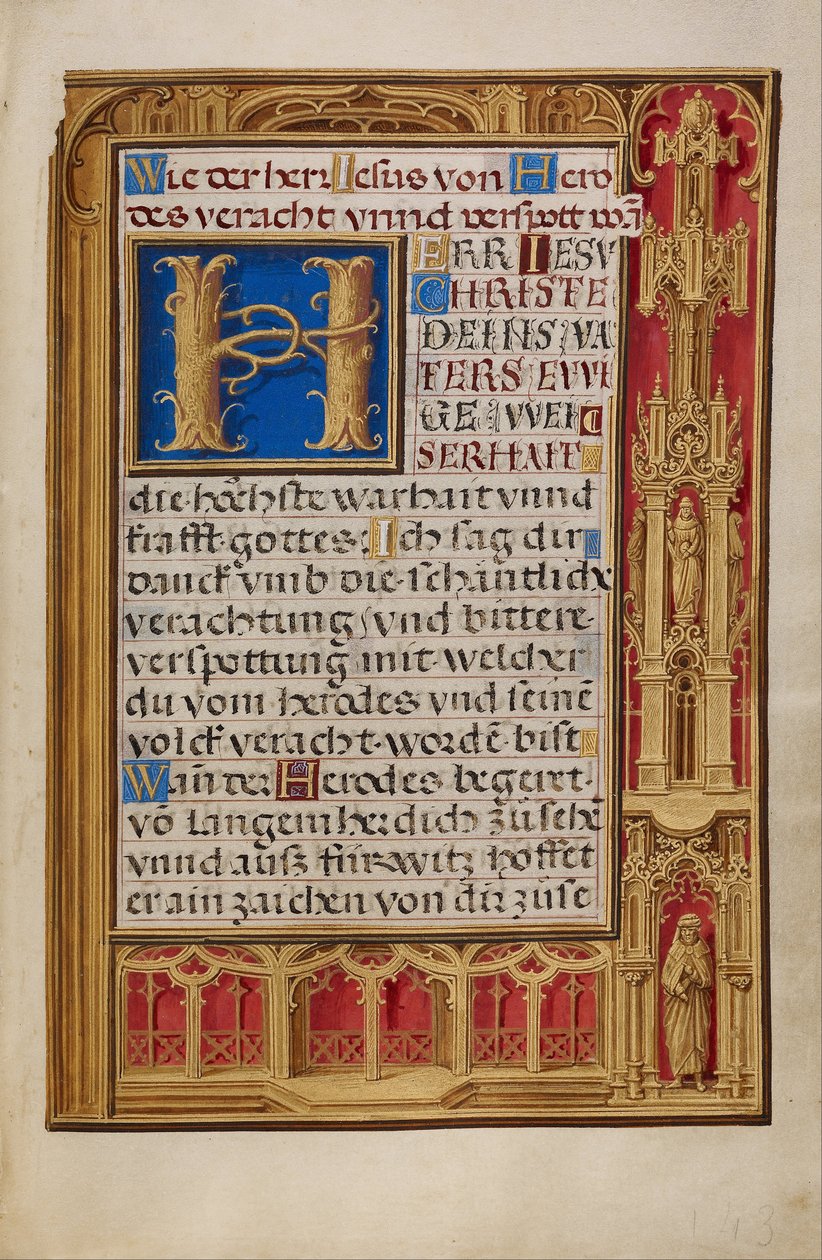 Wie der herr Iesus von Hero
des veracht vnnd verspott wā
HERR IESV
CHRISTE
DEINS VA
TERS EVVI
GE VVEI
SERHAIT
die höchste warhait vnnd
krafft gottes Ich sag dir
danck vmb die schäntliche
verachtung und bittere
verspottung mit welcher
du vom herodes vnd seinē
volck veracht wordē bist
Wañ der Herodes begeret
vō langem her dich zůsehē
vnnd ausz fürwitz hoffet
er ain zaichen von dir zůse
143